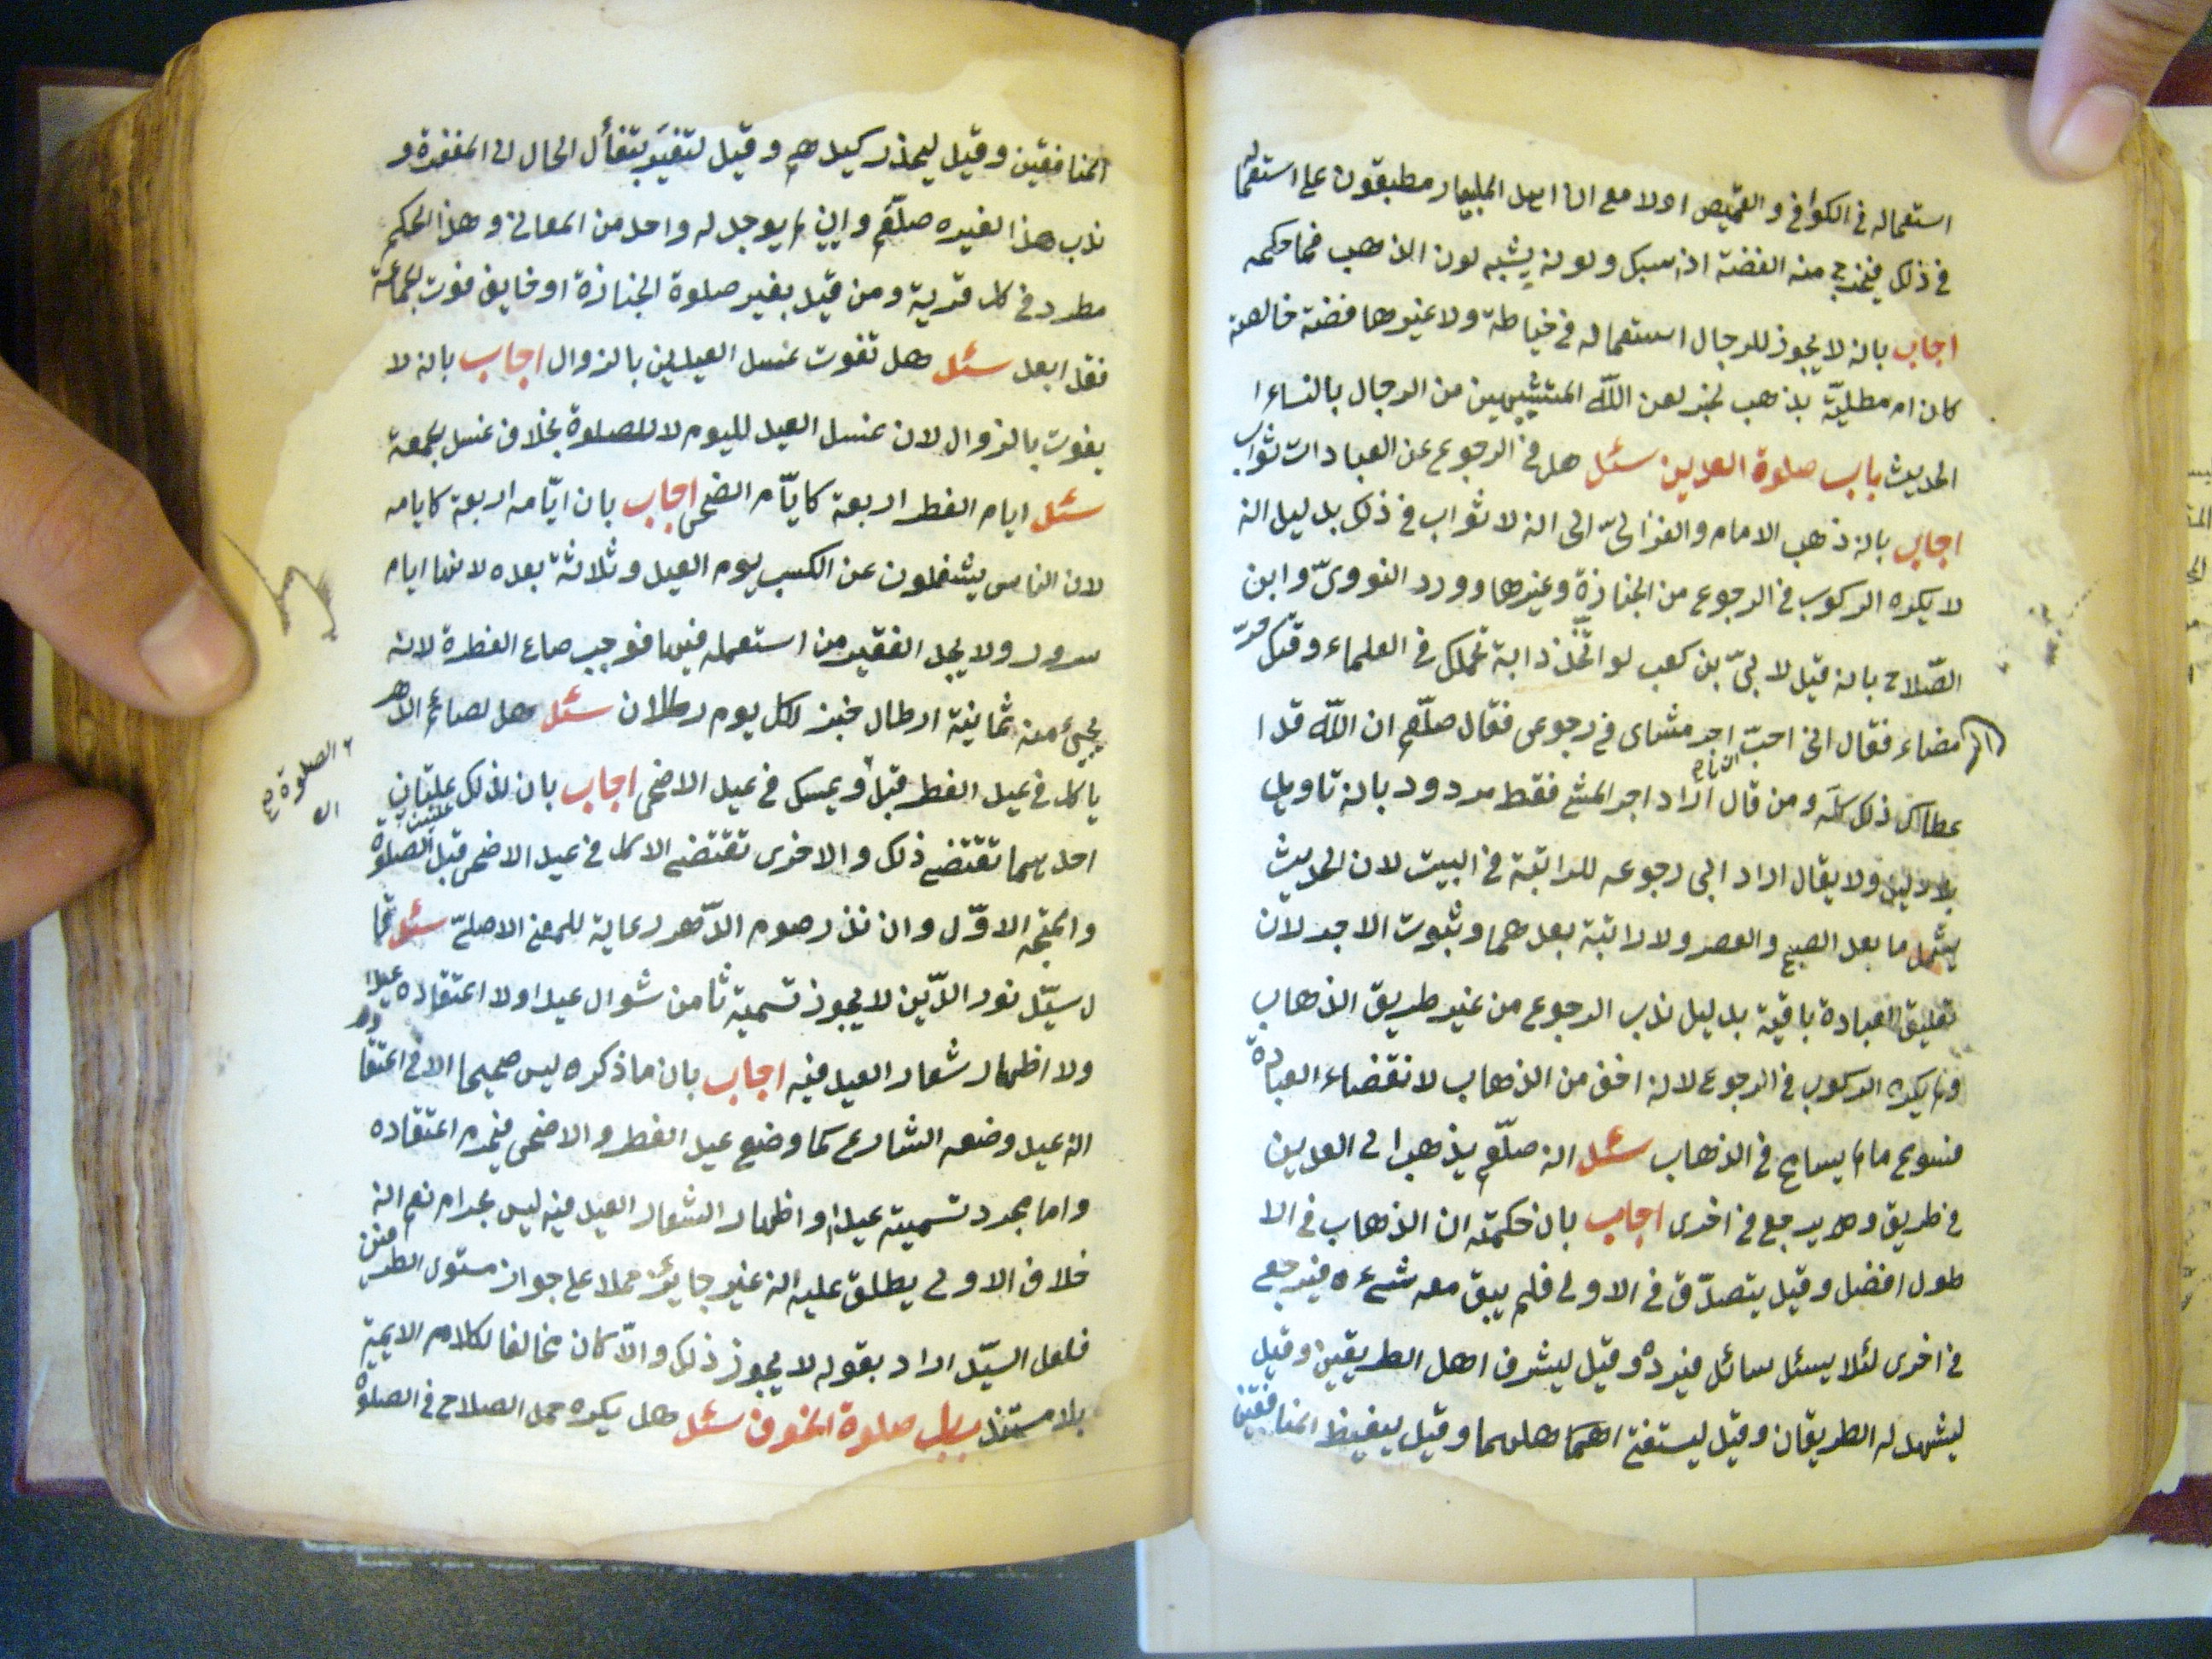 استعماله في الكوافي والقميص اولا مع ان اهل المليبار مطبقون على استعماله
في ذلك فيخرج منه الفضة اذ سبك ولونه يشبه لون الذهب فما حكمه
اجاب بانه لا يجوز للرجال استعماله في خياطة ولا غيرها فضة خالصة
كان ام مطليّة بذهب لخبر لعن اللّه المتشبّهين من الرجال بالنساء ا
الحديث باب صلوة العيدين سئل هل في الرجوع عن العبادات ثواب
اجاب بانه ذهب الامام والغزاليّ الى انه لا ثواب في ذلك بدليل انه
لا يكره الركوب في الرجوع من الجنازة وغيرها وورد النوويّ وابن
الصّلاح بانه قيل لابيّ بن كعب لو اتّخذ دابة تحملك في العلماء وقيل
الرمضاء فقال اني احبّ اجر مشاي في رجوعي فقال صلّعم ان اللّه قد ا
عطاك ذلك كلّه ومن قال اراد اجر المشي فقط مردود بانه تاويل
بلا دليل ولا يقال اراد ابي رجوعه للراتبة في البيت لان الحديث
يشمل ما بعد الصبح والعصر ولا راتبة بعدهما وثبوت الاجر لان
تعليق العبادة باقية بدليل ندب الرجوع من غير طريق الذهاب
ولم يكره الركوب في الرجوع لانه اخف من الذهاب لانقضاء العبادة
فسومح ما لم يسامح في الذهاب سئل انه صلّعم يذهب الى العيدين
في طريق وهو يرجع في اخرى اجاب بان حكمته ان الذهاب في الا
طول افضل وقيل يتصدّق في الاولى فلم يبق معه شيء فيرجع
في اخرى لئلا يسئل سائل فيرده وقيل ليشرف اهل الطريقين وقيل
ليشهد له الطريقان وقيل ليستفتي اهلهما وقيل ليغيظ المنافقين
المنافقين وقيل ليحذر كيدهم وقيل لتغير بتفأل الحال الى المغفرة و
ندب هذا لغيره صلّعم واين لم يوجد له واحد من المعاني وهذا الحكم
مطرد في كل قربة ومن قيل بغير صلوة الجنازة او خايف فوت الجماعة
فقد ابعد سئل هل تفوت غسل العيدين بالزوال اجاب بانه لا
يفوت بالزوال لان غسل العيد لليوم لا للصلوة بخلاف غسل الجمعة
سئل ايام الفطر اربعة كايّام الضحى اجاب بان ايّامه اربعة كايامه
لان الناس يشغلون عن الكسب يوم العيد وثلاثة بعده لانها ايام
سرور ولا يجد الفقير من استعمله فيها فوجب صاع الفطرة لانه
يجيء منه ثمانية ارطال خبز لكل يوم رطلان سئل هل لصائم الدهر
ياكل في عيد الفطر قبل ويمسك في عيد الاضحى اجاب بان لذلك علتان
علتين
الصلوة
احدهما تقتضي ذلك والاخرى تقتضي الاكل في عيد الاضحى قبل الصلوة
والمتجه الاوّل وان نذر صوم الدّهر رعاية للمعنى الاصليّ سئل قا
ل سيّد نور الدّين لا يجوز تسمية ثامن شوال عيدا ولا اعتقاده عيدا
ولا اظهار شعار العيد فيه اجاب بان ما ذكره ليس صحيحا الا في اعتقاده
انه عيد وضعه الشارع كما وضع عيد الفطر والاضحى فيحرم اعتقاده
واما مجرد تسميته عيدا و اظهار الشعار العيد فيه ليس بحرام نعم انه
خلاف الاولى يطلق عليه انه غير جايز حملا على جواز مستوى الطرفين
فلعل السيّد اراد بقوله لا يجوز ذلك والّا كان مخالفا لكلام الايمة
بلا مستند باب صلوة الخوف سئل هل يكره حمل الصلاح في الصلوة